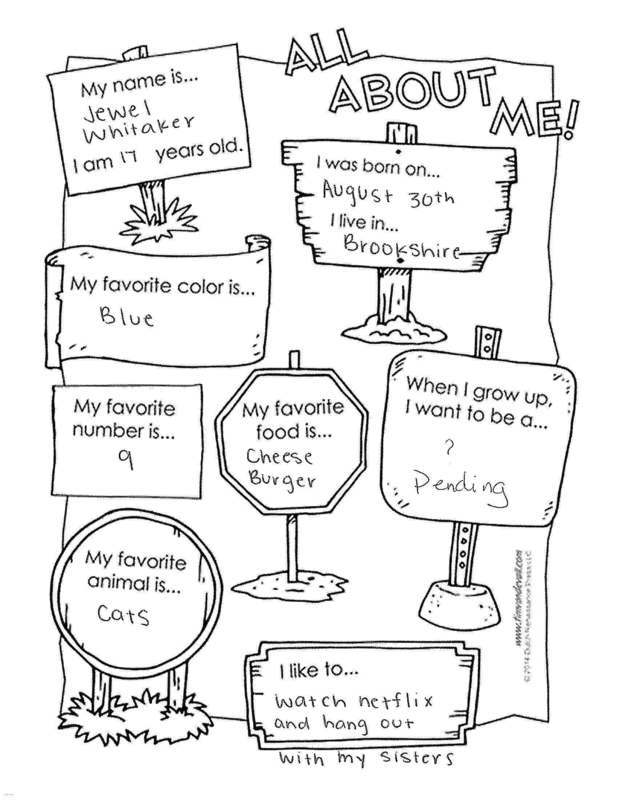 ALL
ABOUT
ME!
My name is...
Jewel
Whitaker
I am 17 years old.
I was born on...
August 30th
I live in...
Brookshire
My favorite color is...
Blue
My favorite
number is...
9
My favorite
food is...
Cheese
Burger
When I grow up,
I want to be a...
?
Pending
My favorite
animal is...
Cats
I like to...
watch netflix
and hang out
with my sisters
www.timvandevall.com